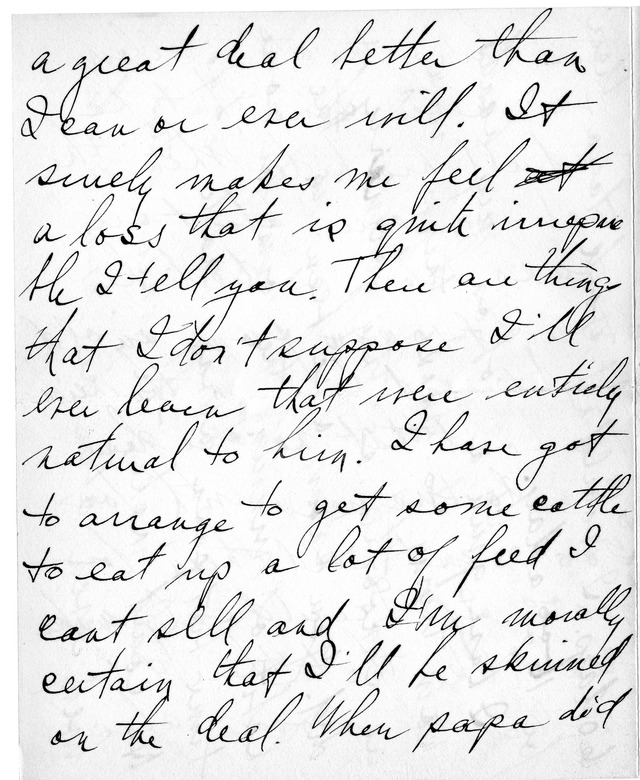 a great deal better than
I can or ever will. It
surely makes me feel at
a loss that is quite irrepara
ble I tell you. There are things
that I don't suppose I'll
ever learn that were entirely
natural to him. I have got
to arrange to get some cattle
to eat up a lot of feed I
cant sell and I'm morally
certain that I'll be skinned
on the deal. When papa did